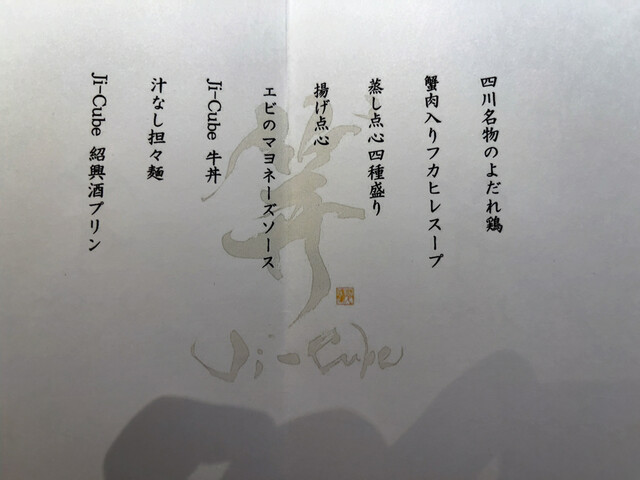 四川名物のよだれ鶏
蟹肉入りフカヒレスープ
蒸し点心四種盛り
揚げ点心
エビのマヨネーズソース
Ji-Cube 牛丼
汁なし担々麺
Ji-Cube 紹興酒プリン
Ji-Cube